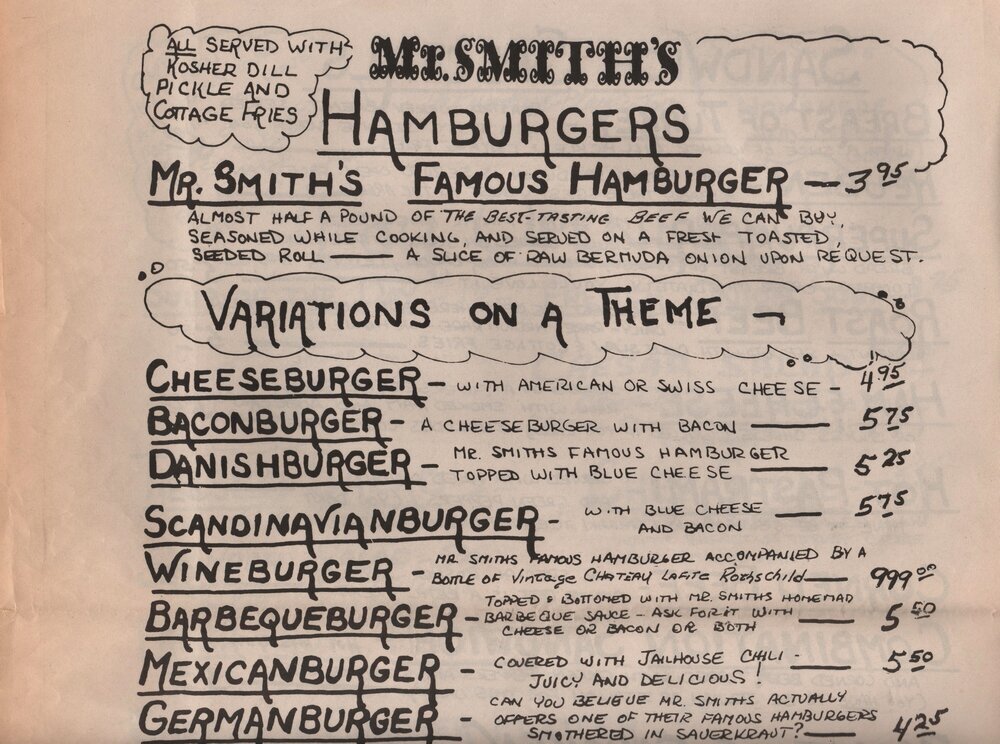 ALL SERVED WITH
KOSHER DILL
PICKLE AND
COTTAGE FRIES
Mr. SMITH'S
HAMBURGERS
MR. SMITH'S FAMOUS HAMBURGER — 3.95
ALMOST HALF A POUND OF THE BEST-TASTING BEEF WE CAN BUY,
SEASONED WHILE COOKING, AND SERVED ON A FRESH TOASTED,
SEEDED ROLL — A SLICE OF RAW BERMUDA ONION UPON REQUEST.
VARIATIONS ON A THEME ¬
CHEESEBURGER - WITH AMERICAN OR SWISS CHEESE - 4.95
BACONBURGER - A CHEESEBURGER WITH BACON — 5.75
DANISHBURGER - MR. SMITHS FAMOUS HAMBURGER
TOPPED WITH BLUE CHEESE — 5.25
SCANDINAVIANBURGER - WITH BLUE CHEESE — 5.75
AND BACON
WINEBURGER - MR. SMITHS FAMOUS HAMBURGER ACCOMPANIED BY A
BOTTLE OF Vintage CHATEAU LAFITE Rothschild — 999.00
BARBEQUEBURGER - TOPPED & BOTTOMED WITH MR. SMITHS HOMEMAD
BARBEQUE SAUCE - ASK FOR IT WITH — 5.50
CHEESE OR BACON OR BOTH
MEXICANBURGER - COVERED WITH JAILHOUSE CHILI - — 5.50
JUICY AND DELICIOUS!
GERMANBURGER - CAN YOU BELIEVE MR. SMITHS ACTUALLY
OFFERS ONE OF THEIR FAMOUS HAMBURGERS
SMOTHERED IN SAUERKRAUT? — 4.25